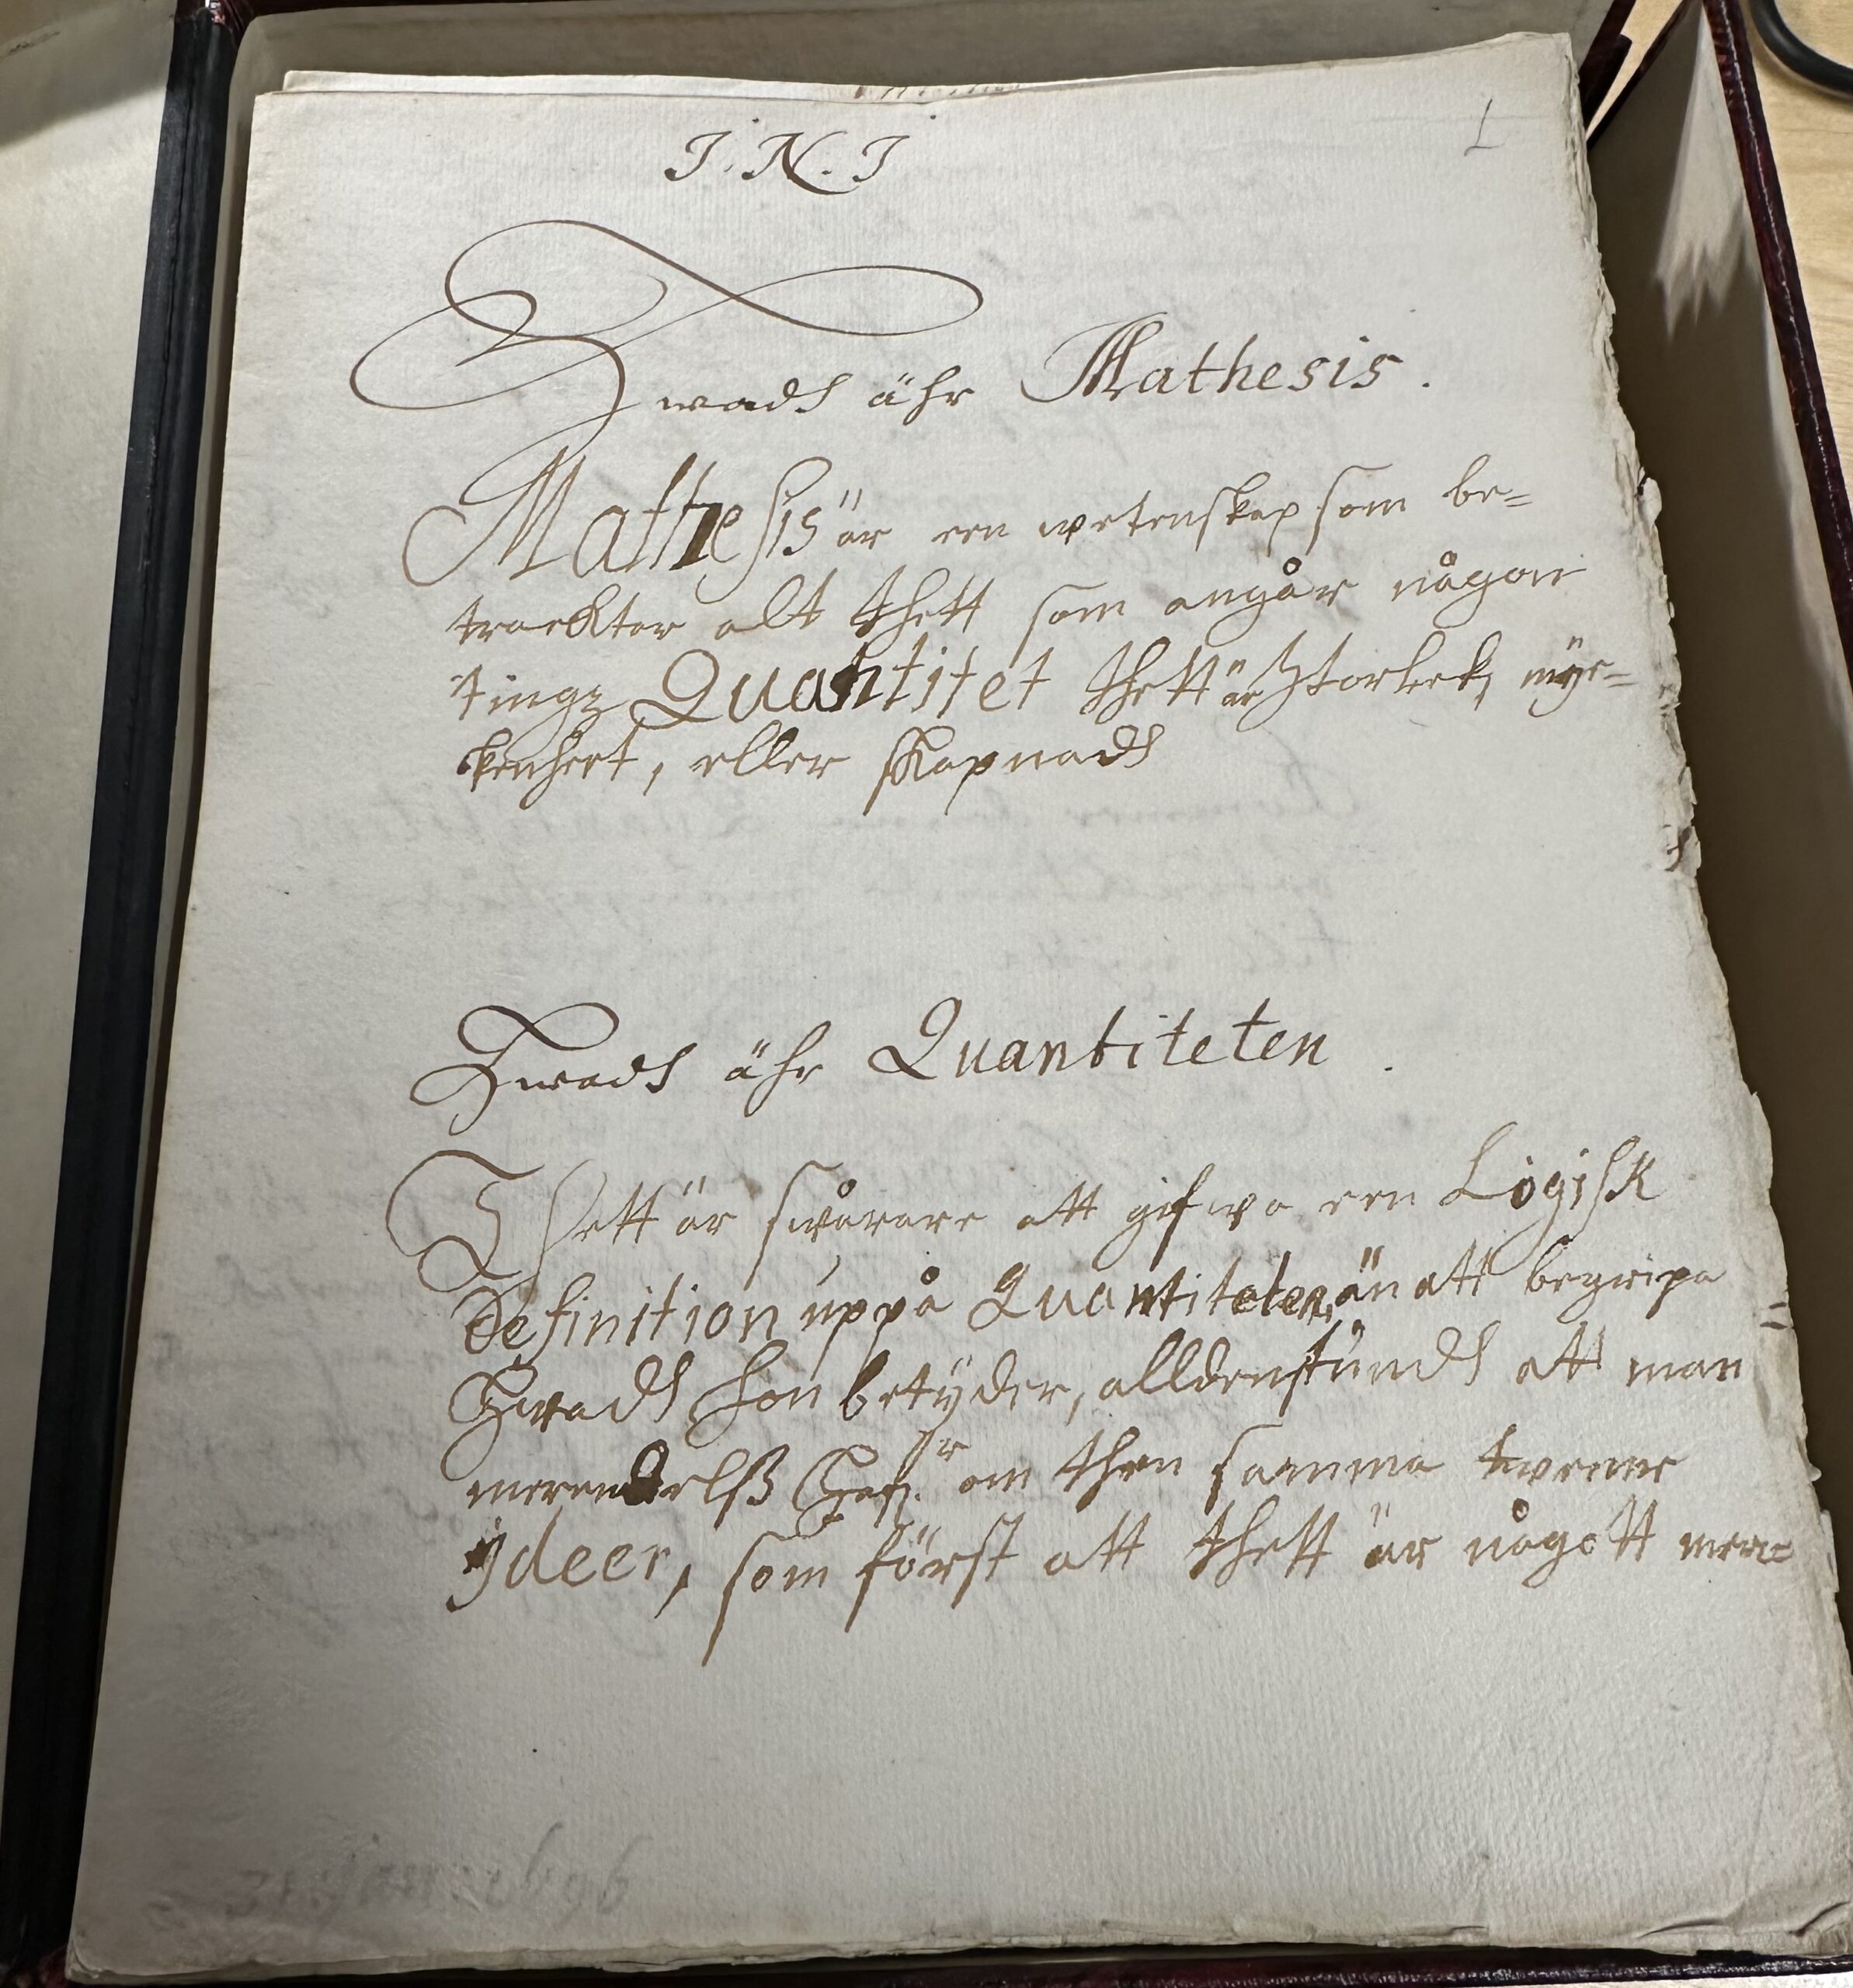 J. N. J
1
Hwadh ähr Mathesis.
Mathesis är een wetenskap som be=
tracktar alt thett som angår någon
tingz Quantitet thett är Storleek, myc=
kenheet, eller skapnadh
Hwadh ähr Quantiteten.
Thett är swårare att gifwa een Logisk
Definition uppå Quantiteten, än att begripa
Hwadh hon betyder, alldenstundh att man
merendelß om then samma tweene
ydeer, som först att thett är någott mer=